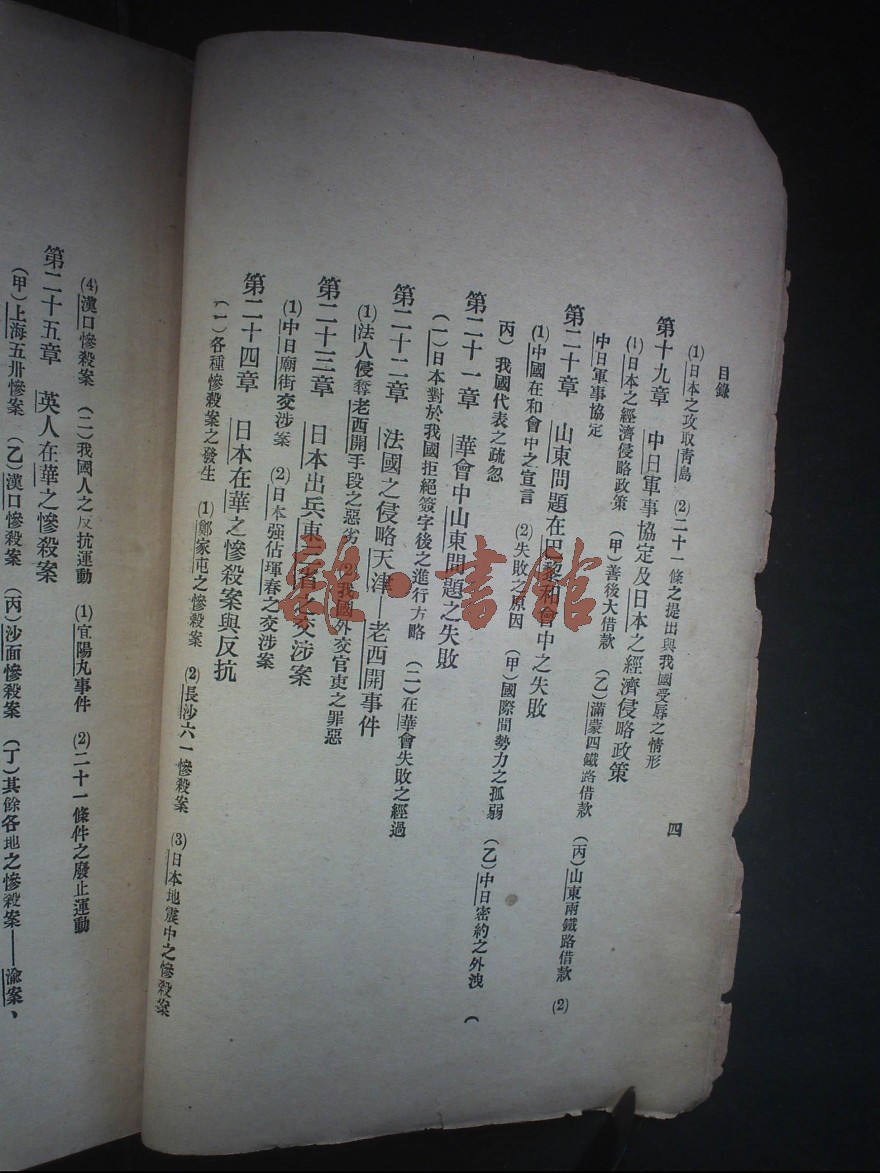 目錄
四
(1)日本之攻取青島　(2)二十一條之提出與我國受辱之情形
第十九章　中日軍事協定及日本之經濟侵略政策
(1)日本之經濟侵略政策　(甲)善後大借款　(乙)滿蒙四鐵路借款　(丙)山東兩鐵路借款　(2)
中日軍事協定
第二十章　山東問題在巴黎和會中之失敗
(1)中國在和會中之宣言　(2)失敗之原因　(甲)國際間勢力之孤弱　(乙)中日密約之外洩　(
丙)我國代表之疏忽
第二十一章　華會中山東問題之失敗
(一)日本對於我國拒絕簽字後之進行方略　(二)在華會失敗之經過
第二十二章　法國之侵略天津—老西開事件
(1)法人侵奪老西開手段之惡劣　(2)我國外交官吏之罪惡
第二十三章　日本出兵東三省之交涉案
(1)中日廟街交涉案　(2)日本強佔琿春之交涉案
第二十四章　日本在華之慘殺案與反抗
(一)各種慘殺案之發生　(1)鄭家屯之慘殺案　(2)長沙六一慘殺案　(3)日本地震中之慘殺案
(4)漢口慘殺案　(二)我國人之反抗運動　(1)宜陽丸事件　(2)二十一條件之廢止運動
第二十五章　英人在華之慘殺案
(甲)上海五卅慘案　(乙)漢口慘殺案　(丙)沙面慘殺案　(丁)其餘各地之慘殺案——渝案、
雜·書館